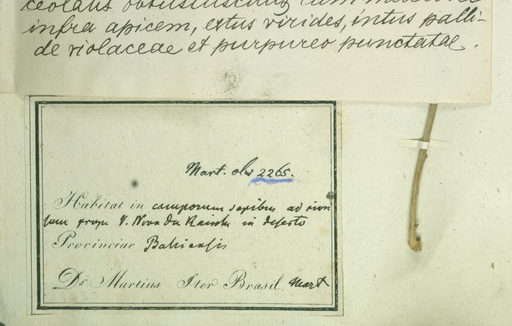 ceolatis obtusiusculis
infra apicem, extus virides, intus palli-
de violaceae et purpureo punctatae.
Mart. obs 2265.
Habitat in camporum sepibus ad rivu
lum prope V. Nova da Rainha in deserto
Provinciae Bahiensis
Dr Martius Iter Brasil. Mart